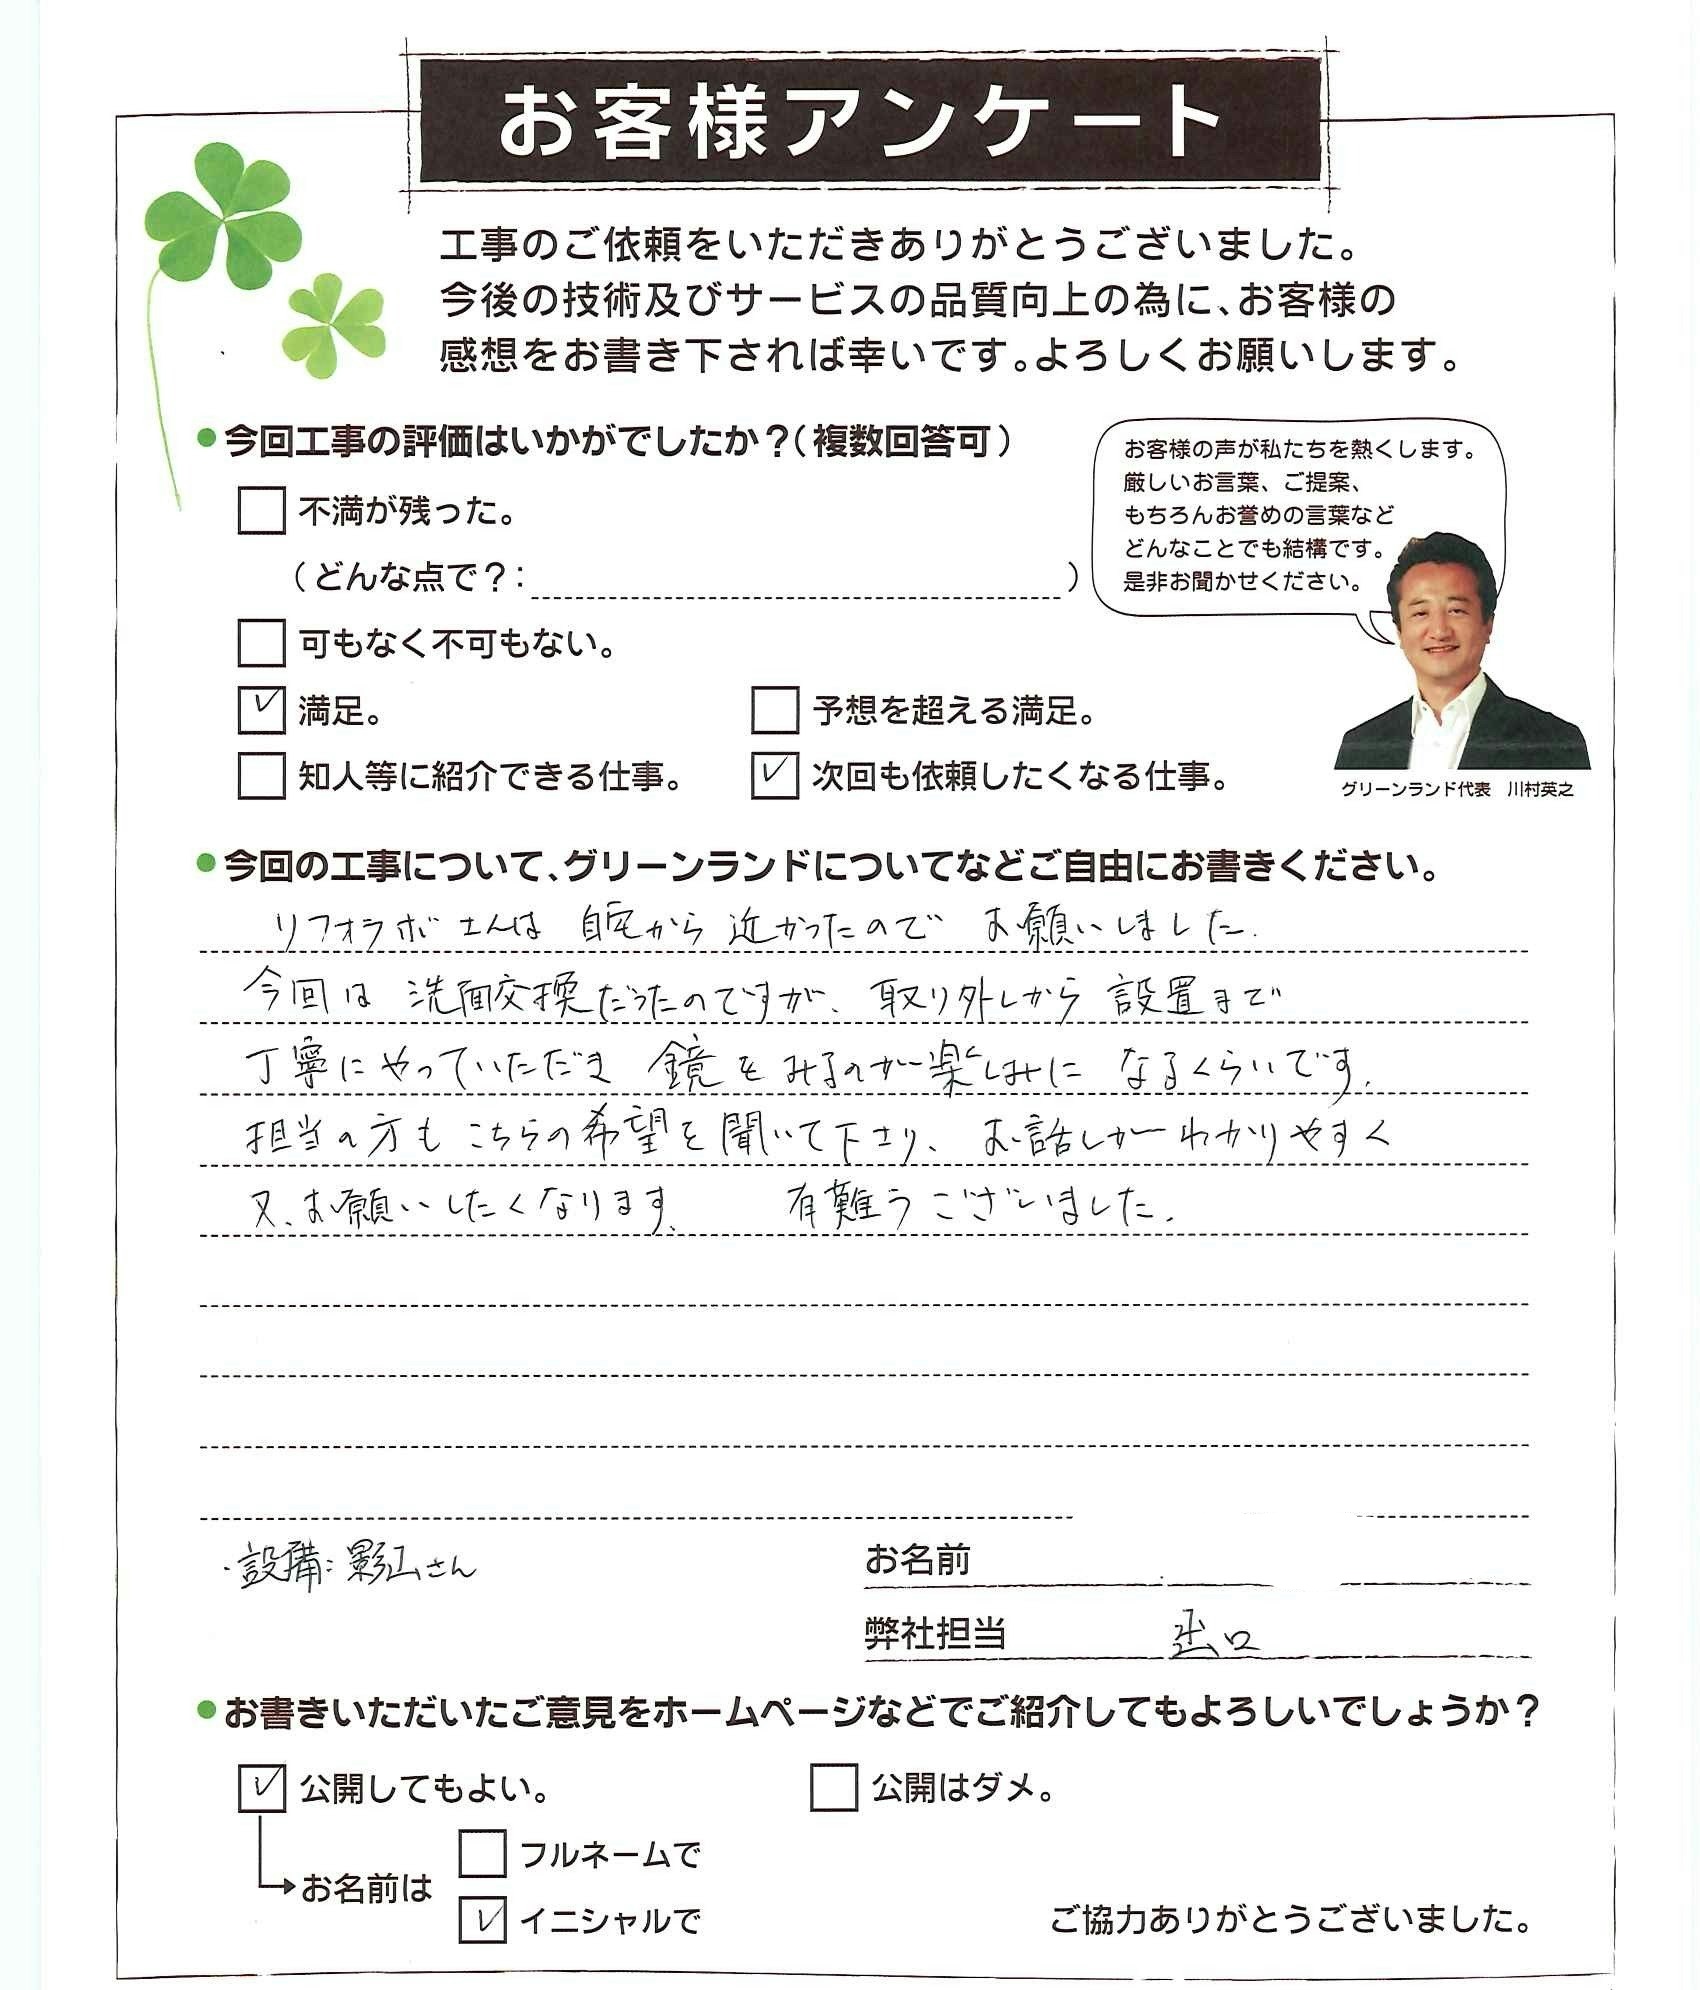 お客様アンケート
工事のご依頼をいただきありがとうございました。
今後の技術及びサービスの品質向上の為に、お客様の
感想をお書き下されば幸いです。よろしくお願いします。
●今回工事の評価はいかがでしたか？（複数回答可）
不満が残った。
（どんな点で？：　）
可もなく不可もない。
満足。
予想を超える満足。
知人等に紹介できる仕事。
次回も依頼したくなる仕事。
お客様の声が私たちを熱くします。
厳しいお言葉、ご提案、
もちろんお誉めの言葉など
どんなことでも結構です。
是非お聞かせください。
グリーンランド代表　川村英之
●今回の工事について、グリーンランドについてなどご自由にお書きください。
リフォラボさんは 自宅から 近かったので お願いしました.
今回は 洗面交換だったのですが、取り外しから 設置まで
丁寧にやっていただき 鏡をみるのが楽しみに なるくらいです.
担当の方も こちらの希望を聞いて下さり、お話しがわかりやすく
又、お願いしたくなります、 有難うございました.
・設備: 影山さん
お名前
弊社担当 出口
●お書きいただいたご意見をホームページなどでご紹介してもよろしいでしょうか？
公開してもよい。
公開はダメ。
お名前は
フルネームで
イニシャルで
ご協力ありがとうございました。